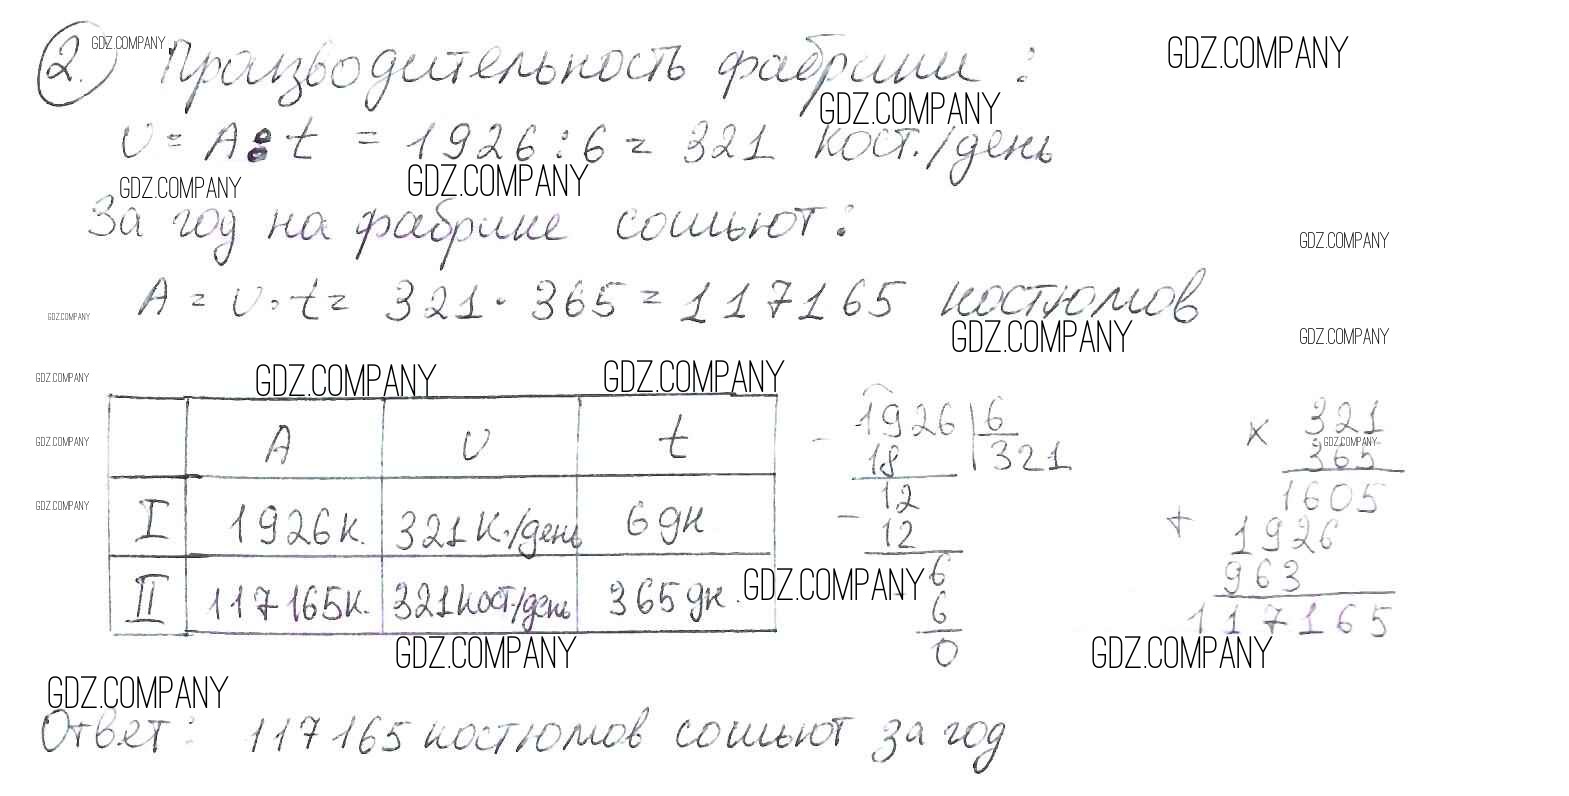 2. Производительность фабрики:
GDZ.COMPANY
GDZ.COMPANY
GDZ.COMPANY
υ = A : t = 1926 : 6 = 321 кост./день
GDZ.COMPANY
GDZ.COMPANY
За год на фабрике сошьют:
GDZ.COMPANY
A = υ · t = 321 · 365 = 117165 костюмов
GDZ.COMPANY
GDZ.COMPANY
GDZ.COMPANY
GDZ.COMPANY
GDZ.COMPANY
GDZ.COMPANY
A υ t
GDZ.COMPANY
I 1926к. 321 к./день 6 дн
GDZ.COMPANY
II 117165к. 321 кост./день 365 дн.
GDZ.COMPANY
1926 | 6
- 18 321
12
- 12
6
- 6
0
× 321
GDZ.COMPANY
365
1605
+ 1926
963
117165
GDZ.COMPANY
GDZ.COMPANY
GDZ.COMPANY
Ответ: 117165 костюмов сошьют за год